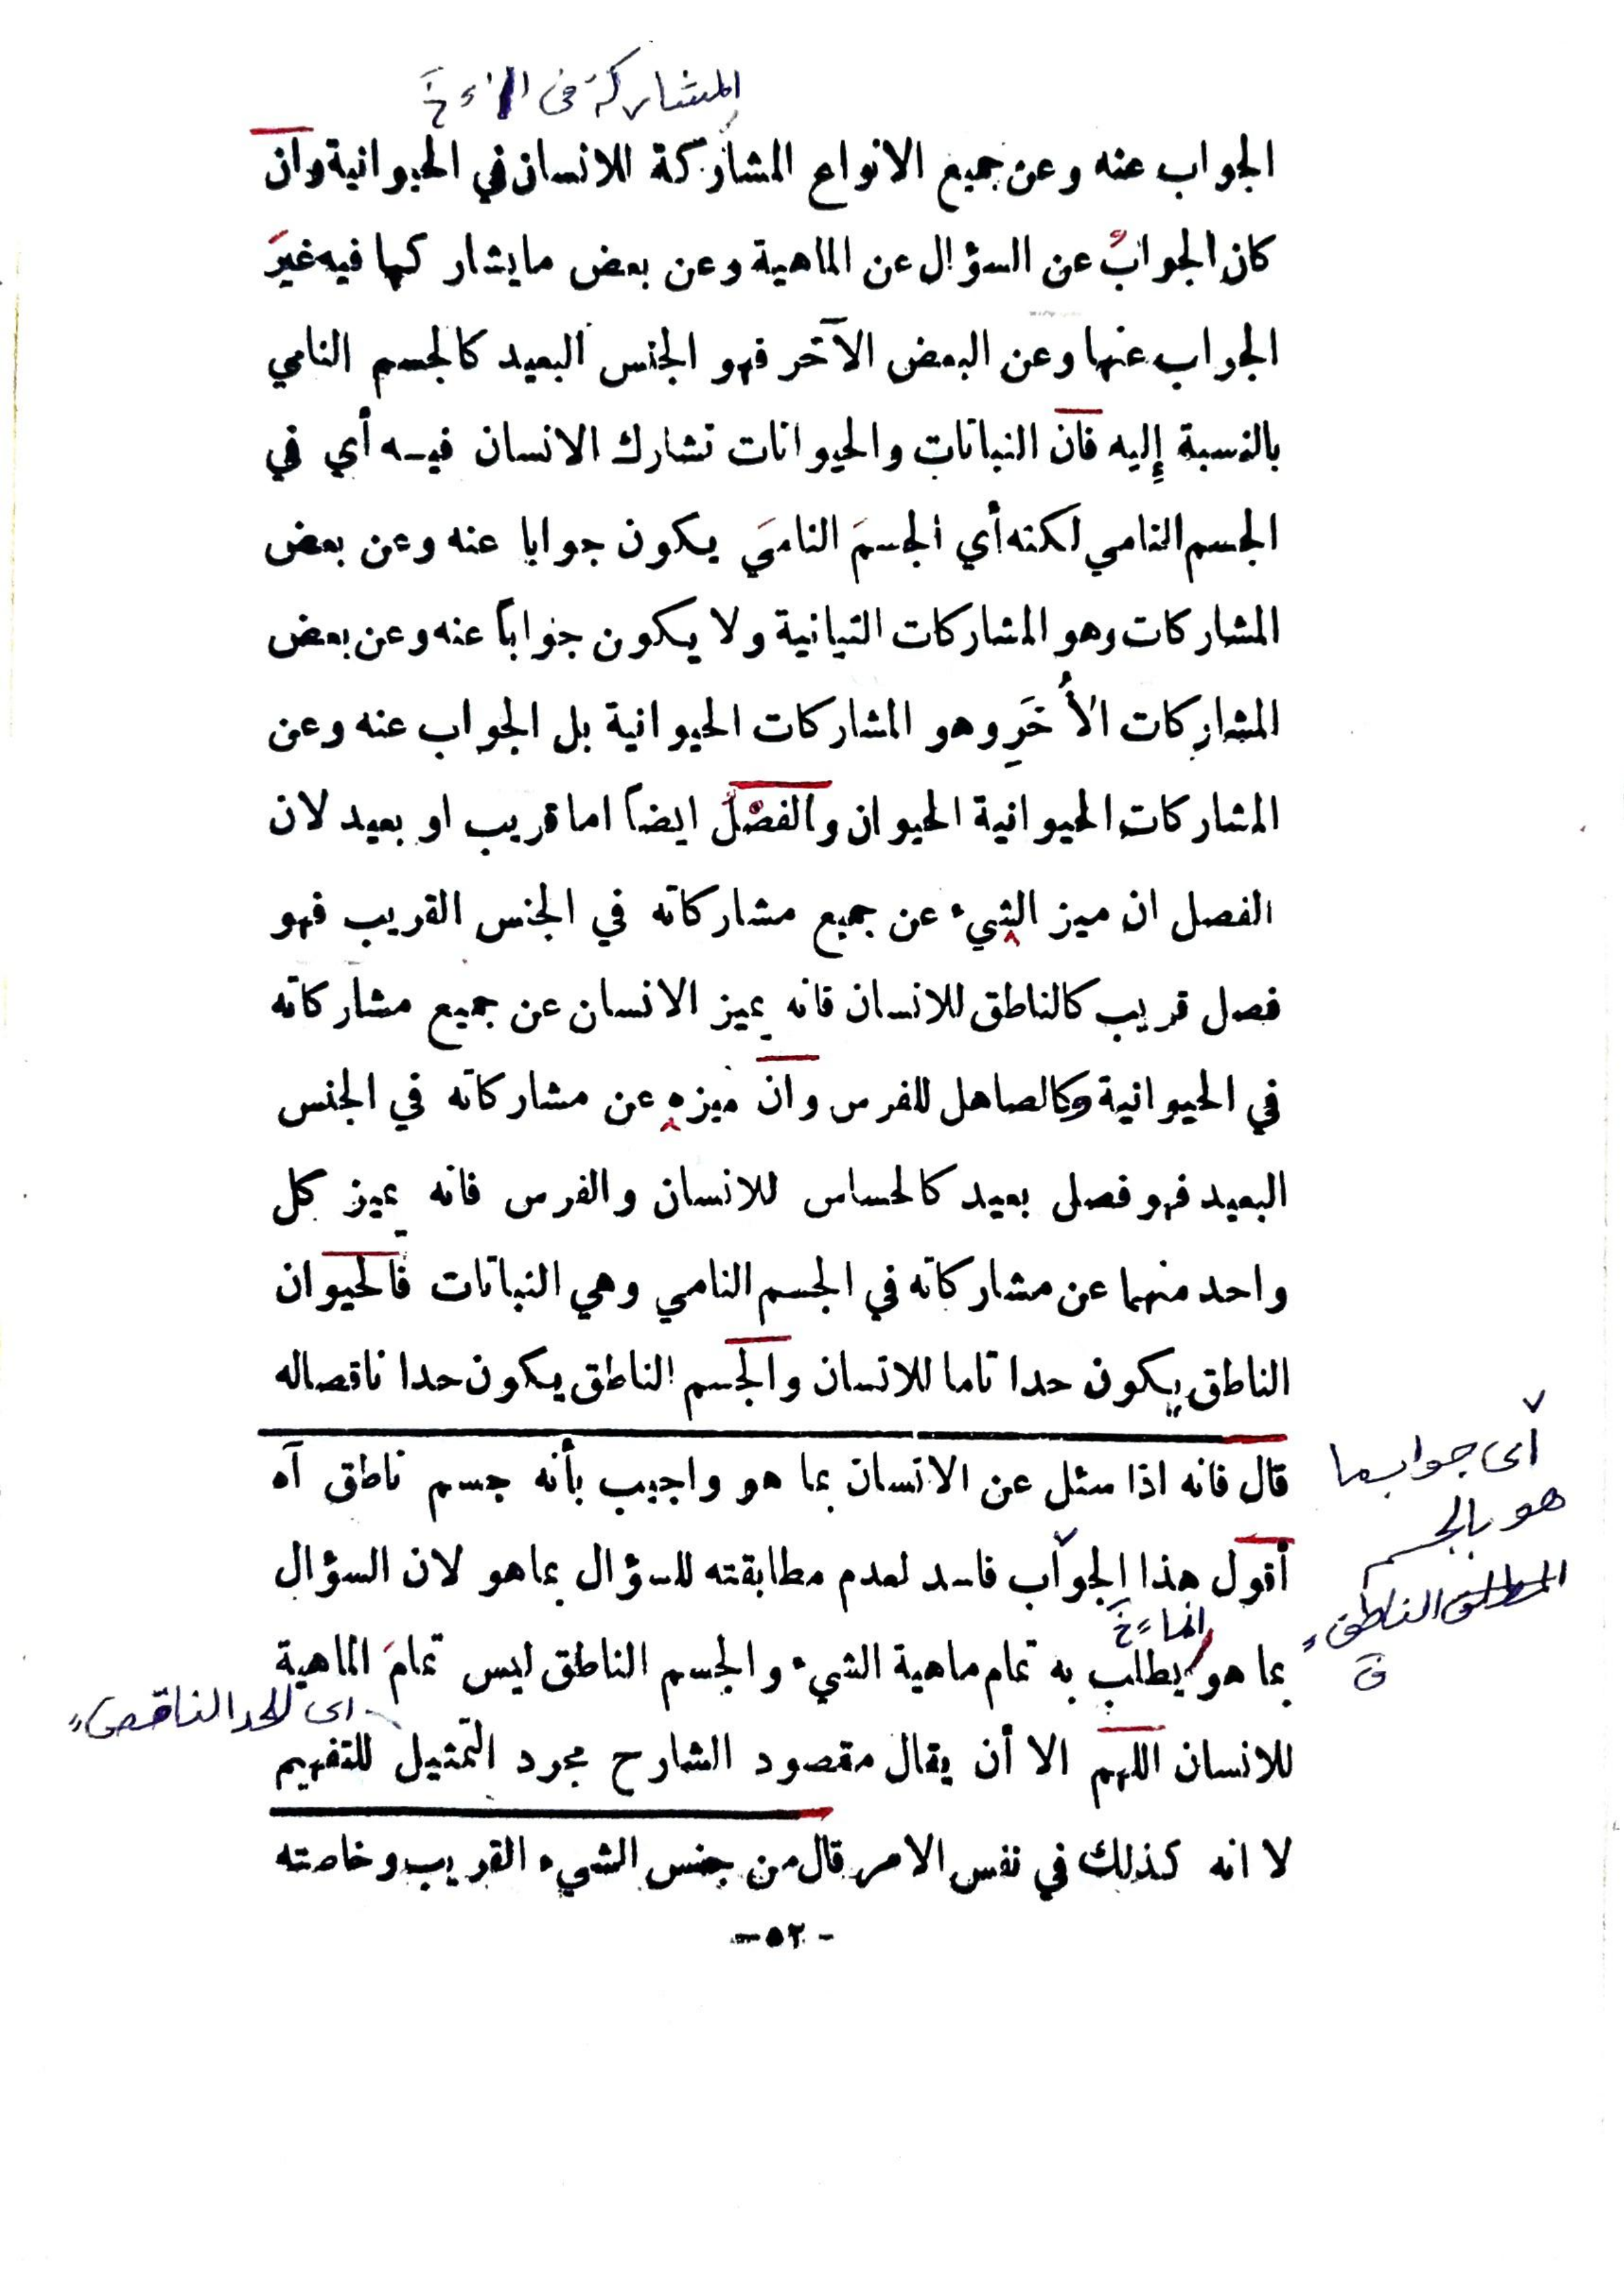 المشاركة فى
الجواب عنه وعن جميع الانواع المشاركة للانسان في الحيوانية وان
كان الجوابُ عن السؤال عن الماهية وعن بعض ما يشار كها فيه غيرَ
الجواب عنها وعن البعض الآخر فهو الجنس البعيد كالجسم النامي
بالنسبة إليه فان النباتات والحيوانات تشارك الانسان فيه أي في
الجسم النامي لكنه أي الجسمَ الناميَ يكون جوابا عنه وعن بعض
المشاركات وهو المشاركات النباتية ولا يكون جواباً عنه وعن بعض
المشاركات الأُخَرِ وهو المشاركات الحيوانية بل الجواب عنه وعن
المشاركات الحيوانية الحيوان والفصْلُ ايضاً اما قريب او بعيد لان
الفصل ان ميز الشيء عن جميع مشاركاته في الجنس القريب فهو
فصل قريب كالناطق للانسان فانه يميز الانسان عن جميع مشاركاته
في الحيوانية وكالصاهل للفرس وان ميزه عن مشاركاته في الجنس
البعيد فهو فصل بعيد كالحساس للانسان والفرس فانه يميز كل
واحد منهما عن مشاركاته في الجسم النامي وهي النباتات فالحيوان
الناطق يكون حدا تاما للانسان والجسم الناطق يكون حدا ناقصا له
قال فانه اذا سئل عن الانسان بما هو واجيب بأنه جسم ناطق آه
أى جواب ما
هو بالجسم
المطلق الناطق
أقول هذا الجواب فاسد لعدم مطابقته للسؤال بما هو لان السؤال
انما
بما هو يطلب به تمام ماهية الشيء والجسم الناطق ليس تمامَ الماهية
اى للحد الناقص
للانسان اللهم الا أن يقال مقصود الشارح مجرد التمثيل للتفهيم
لا انه كذلك في نفس الامر قال من جنس الشيء القريب وخاصته
-٥٢-